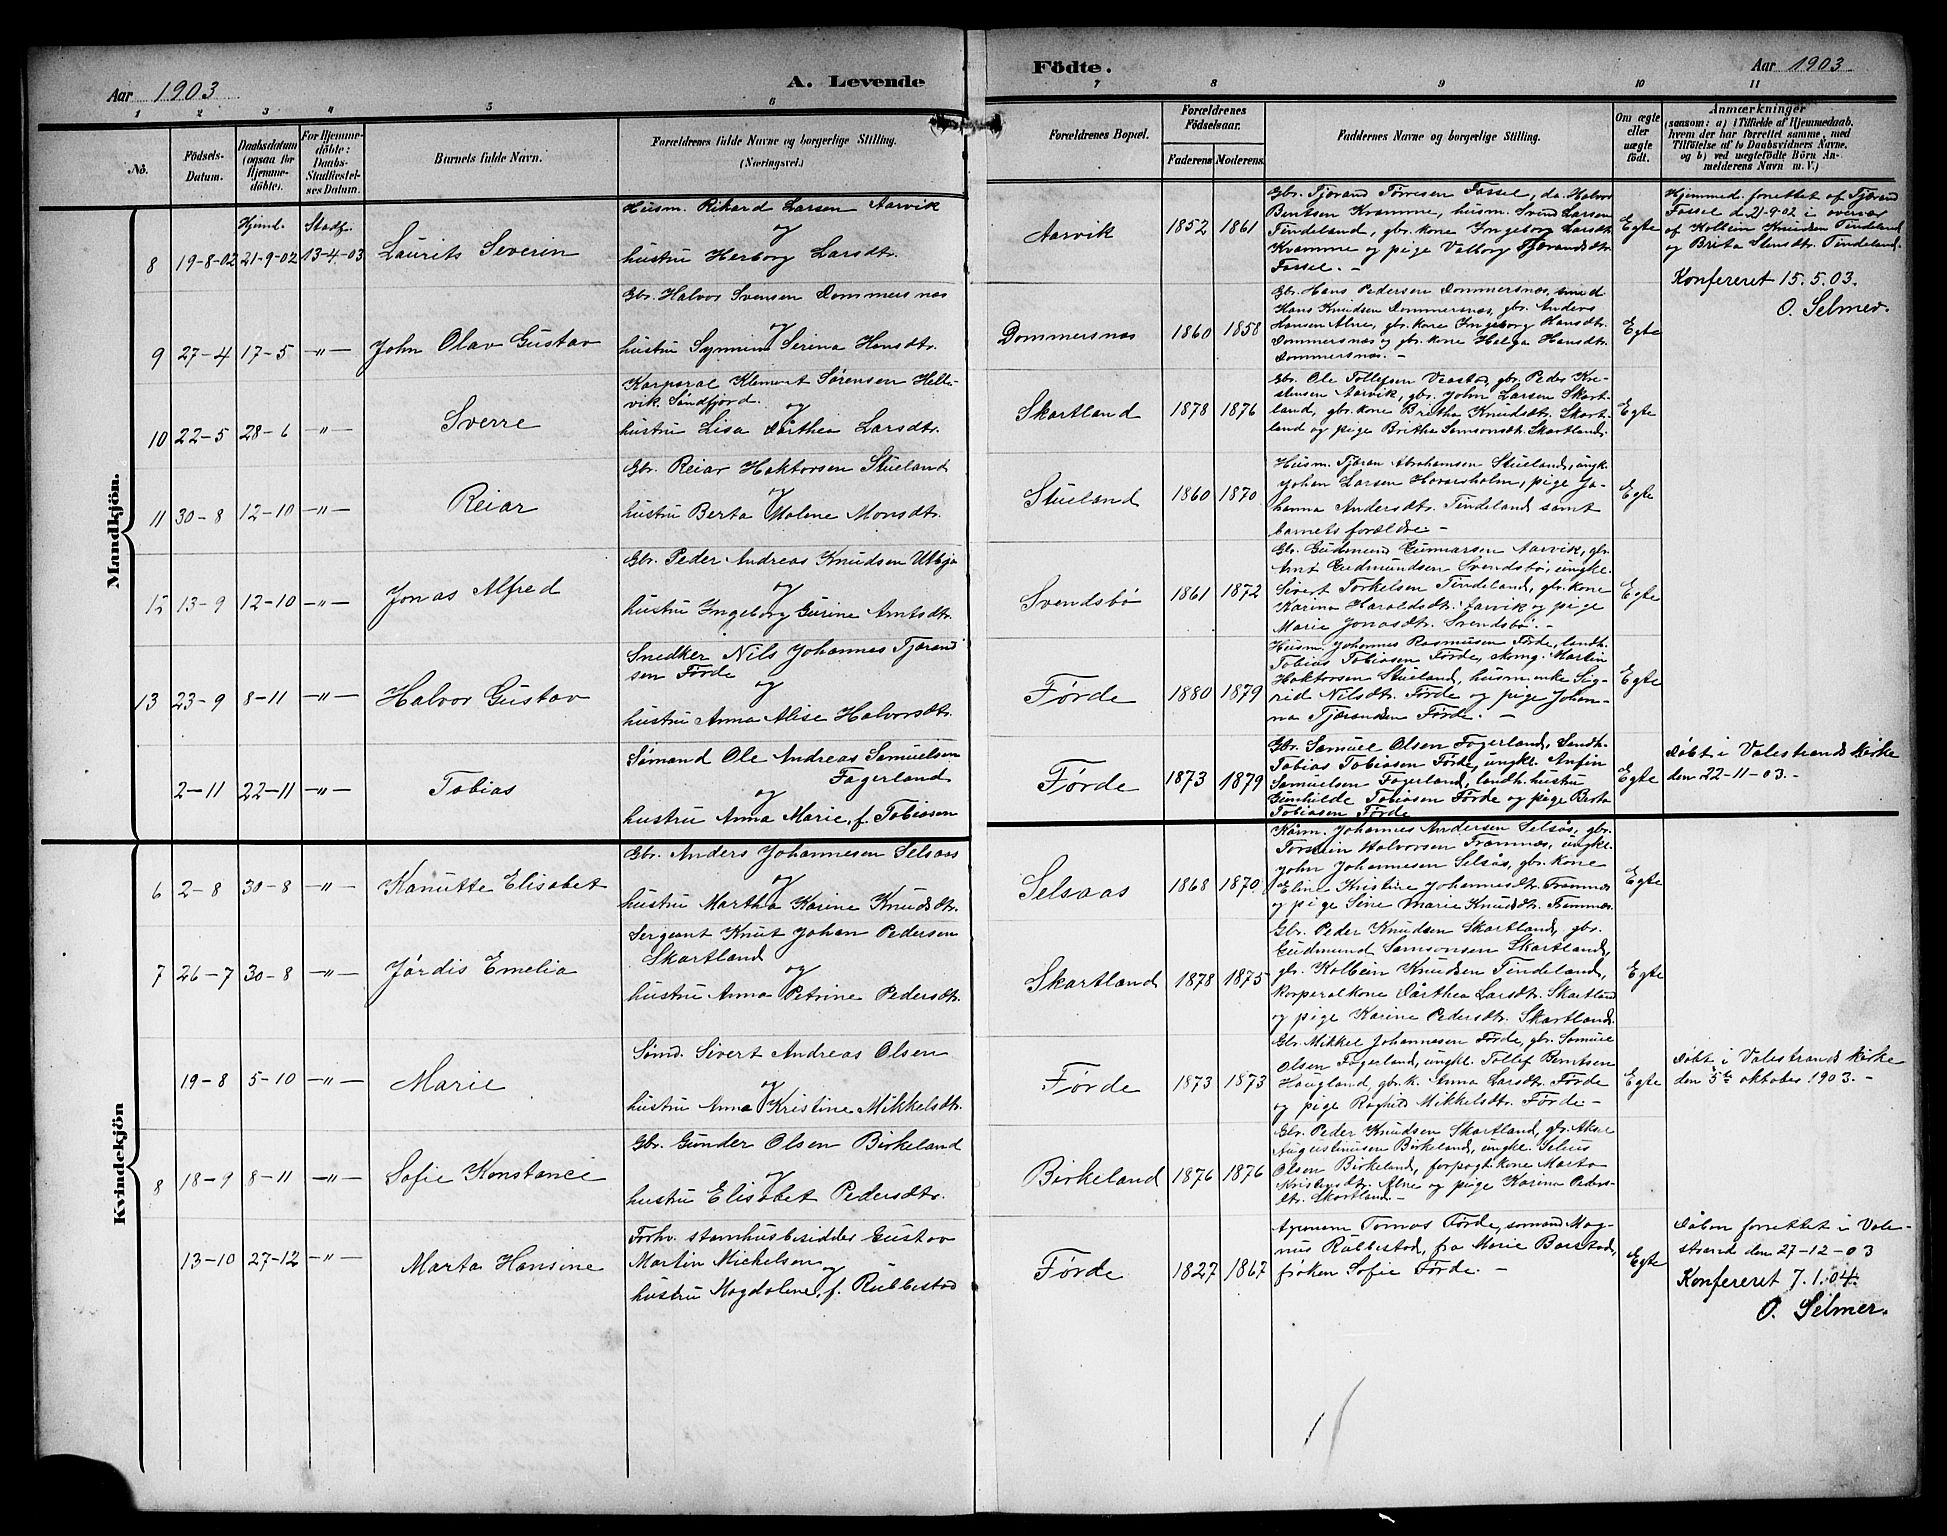 Aar 1903
A. Levende
Födte.
Aar 1903
1 2 3 4 5 6 7 8 9 10 11
No.
Födsels-
Datum.
Daabsdatum
(ogsaa for
Hjemme-
döbte).
For Hjemme-
döbte:
Daabs-
Stadfæstel-
ses Datum.
Barnets fulde Navn.
Forældrenes fulde Navne og borgerlige Stilling.
(Næringsvei.)
Forældrenes Bopæl.
Forældrenes
Födselsaar.
Faderens. Moderens.
Faddernes Navne og borgerlige Stilling.
Om ægte
eller
uægte
födt.
Anmærkninger
(saasom: a) i Tilfælde af Hjemmedaab,
hvem der har forrettet samme, med
Tilföielse af to Daabsvidners Navne,
og b) ved uægtefödte Börn An-
melderens Navn m. V.)
Mandkjön.
8 19-8-02 Hjemd. 21-9-02 Stadf. 13-4-03 Laurits Severin
Husm. Rikard Larsen Aarvik
og
hustru Herborg Larsdtr.
Aarvik 1852 1861
Gbr. Tjørand Tørresen Fassel, do. Halvor
Bentsen Kvamme, husm. Svend Larsen
Tindeland, gbr. kone Ingeborg Larsdtr.
Kvamme og pige Valborg Tjørandsdtr.
Fassel. -
Egte
Hjemmed. forrettet af Tjørand
Fassel d. 21-9-02 i overvær
af Kolbein Knudsen Tindeland
og Brita Stensdtr. Tindeland.
Konfereret 15.5.03.
O. Selmer.
9 27-4 17-5 -"- John Olav Gustav
Gbr. Halvor Svensen Dommersnes
og
hustru Synniva Serina Hansdtr.
Dommersnæs 1860 1858
Gbr. Hans Pedersen Dommersnæs, smed
Hans Knudsen Dommersnæs, gbr. Anders
Hansen Alne, gbr. kone Ingeborg Hansdtr.
Dommersnæs og gbr. kone Helga Hansdtr.
Dommersnæs. -
Egte
10 22-5 28-6 -"- Sverre
Korporal Klement Sørensen Helle-
vik. Søndfjord.
og
hustru Lisa Dårthea Larsdtr.
Skartland 1878 1876
Gbr. Ole Tollefsen Veastad, gbr. Peder Kri-
stensen Aarvik, gbr. John Larsen Skart-
land, gbr. kone Britha Knudsdtr. Skart-
land og pige Britha Samsonsdtr. Skartland.
Egte
11 30-8 12-10 -"- Reiar
Gbr. Reiar Haktorsen Stueland
og
hustru Berta Malene Monsdtr.
Stueland 1860 1870
Husm. Tjøran Abrahamsen Stueland, ungk.
Johan Larsen Hovarsholm, pige Jo-
hanna Andersdtr. Tindeland samt
barnets forældre. -
Egte
12 13-9 12-10 -"- Jonas Alfred
Gbr. Peder Andreas Knudsen Utbjo
og
hustru Ingeborg Gurine Arntsdtr.
Svendsbö 1861 1872
Gbr. Gudmund Gunnarsen Aarvik, gbr.
Arnt Gudmundsen Svendsbö, ungk.
Sivert Torkelsen Tindeland, gbr. kone
Karina Haraldsdtr. Aarvik og pige
Marie Jonasdtr. Svendsbö. -
Egte
13 23-9 8-11 -"- Halvor Gustav
Snedker Nils Johannes Tjørand
sen Førde
og
hustru Anna Alise Halvorsdtr.
Førde 1880 1879
Husm. Johannes Rasmusen Førde, landh.
Tobias Tobiasen Førde, skomg. Martin
Haktorsen Stueland, husm. enke Sig-
rid Nilsdtr. Førde og pige Johan-
na Tjørandsen Førde. -
Egte
2-11 22-11 -"- Tobias
Sømand Ole Andreas Samuelsen
Fagerland
og
hustru Anna Marie, f. Tobiasen
Førde 1873 1879
Gbr. Samuel Olsen Fagerland, Landh.
Tobias Tobiasen Førde, ungk. Anfin
Samuelsen Fagerland, landh. hustru
Gunhilde Tobiasen Førde og pige Berta
Tobiasen Førde
Egte
Døbt i Valestrands kirke
den 22-11-03. -
Kvindekjön
6 2-8 30-8 -"- Kanutte Elisabet
Gbr. Anders Johannesen Selsaas
og
hustru Martha Karine Knudsdtr.
Selsaas 1868 1870
Kårm. Johannes Andersen Selsås, gbr.
Torstein Halvorsen Framnæs, ungk.
John Johannesen Selsås, gbr. kone
Eline Kristine Johannesdtr. Framnæs
og pige Sine Marie Knudsdtr. Framnæs.
Egte
7 26-7 30-8 -"- Jórdis Emelia
Sergeant Knut Johan Pedersen
Skartland
og
hustru Anna Petrine Pedersdtr.
Skartland 1878 1875
Gbr. Peder Knudsen Skartland, gbr.
Gudmund Samsonsen Skartland,
gbr. Kolbein Knudsen Tindeland,
korporalkone Dårthea Larsdtr. Skartland
og pige Karine Pedersdtr. Skartland.
Egte
19-8 5-10 -"- Marie
Sømd. Sivert Andreas Olsen
og
hustru Anna Kristine Mikkelsdtr.
Førde 1873 1873
Gbr. Mikkel Johannesen Førde, gbr. Samuel
Olsen Fagerland, ungk. Tollef Berntsen
Haugland, gbr. k. Anna Larsdtr. Førde
og pige Raghild Mikkelsdtr. Førde -
Egte
Døbt i Valestrands kirke
den 5te oktober 1903. -
8 18-9 8-11 -"- Sofie Konstance
Gbr. Gunder Olsen Birkeland
og
hustru Elisabet Pedersdtr.
Birkeland 1876 1876
Gbr. Peder Knudsen Skartland, gbr. Aksel
Augustinusen Birkeland, ungk. Selius
Olsen Birkeland, forpagt. kone Marta
Kristensdtr. Alne og pige Karina Peders-
dtr. Skartland. -
Egte
13-10 27-12 -"- Marta Hansine
Forhv. stamhusbesidder Gustav
Martin Michelsen
og
hustru Magdalene, f. Rubbestad
Førde 1827 1867
Agronom Tomas Førde, sømand Mag-
nus Rubbestad, fru Marie Barstad,
frøken Sofie Førde. -
Egte
Dåben forrettet i Vale-
strand den 27-12-03
Konfereret 7.1.04.
O. Selmer.